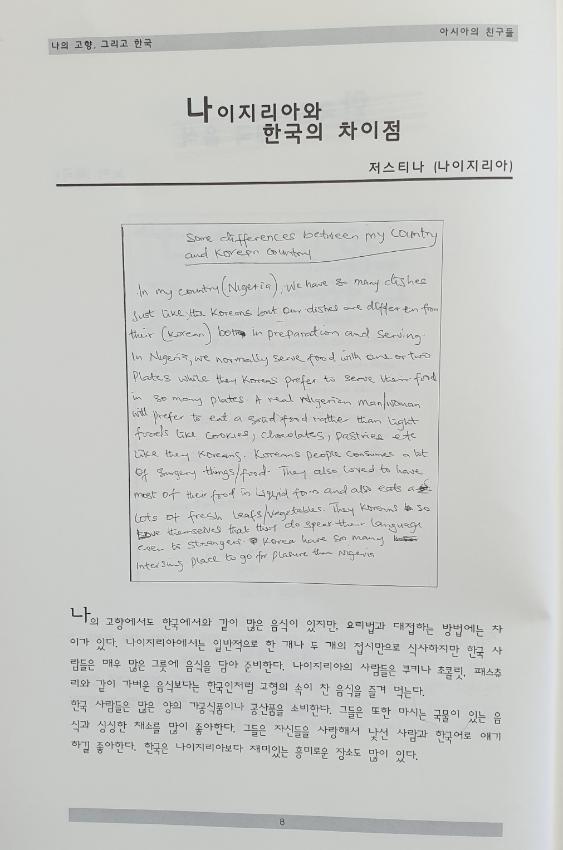 나의 고향, 그리고 한국
아시아의 친구들
나이지리아와
한국의 차이점
저스티나 (나이지리아)
Some differences between my Country
and Korean country
In my country (Nigeria), we have so many dishes
Just like the Koreans but our dishes are differen from
their (Korean) both in preparation and serving.
In Nigeria, we normally serve food with one or two
Plates while they Koreas prefer to serve them food
in so many plates A real Nigerian man/woman
will prefer to eat a solid food rather than light
foods like cookies, chocolates, pastries etc
like they Koreans. Koreans people consumes a lot
of sugary things/food. They also loved to have
most of their food in liquid form and also eats a
lots of fresh leafs/vegetables. They Koreans so
love themselves that they do speak their language
even to strangers. Korea have so many
intersing place to go for plasure than Nigeria
나의 고향에서도 한국에서와 같이 많은 음식이 있지만, 요리법과 대접하는 방법에는 차
이가 있다. 나이지리아에서는 일반적으로 한 개나 두 개의 접시만으로 식사하지만 한국 사
람들은 매우 많은 그릇에 음식을 담아 준비한다. 나이지리아의 사람들은 쿠키나 초콜릿, 패스츄
리와 같이 가벼운 음식보다는 한국인처럼 고형의 속이 찬 음식을 즐겨 먹는다.
한국 사람들은 많은 양의 가공식품이나 공산품을 소비한다. 그들은 또한 마시는 국물이 있는 음
식과 싱싱한 채소를 많이 좋아한다. 그들은 자신들을 사랑해서 낯선 사람과 한국어로 얘기
하길 좋아한다. 한국은 나이지리아보다 재미있는 흥미로운 장소도 많이 있다.
8